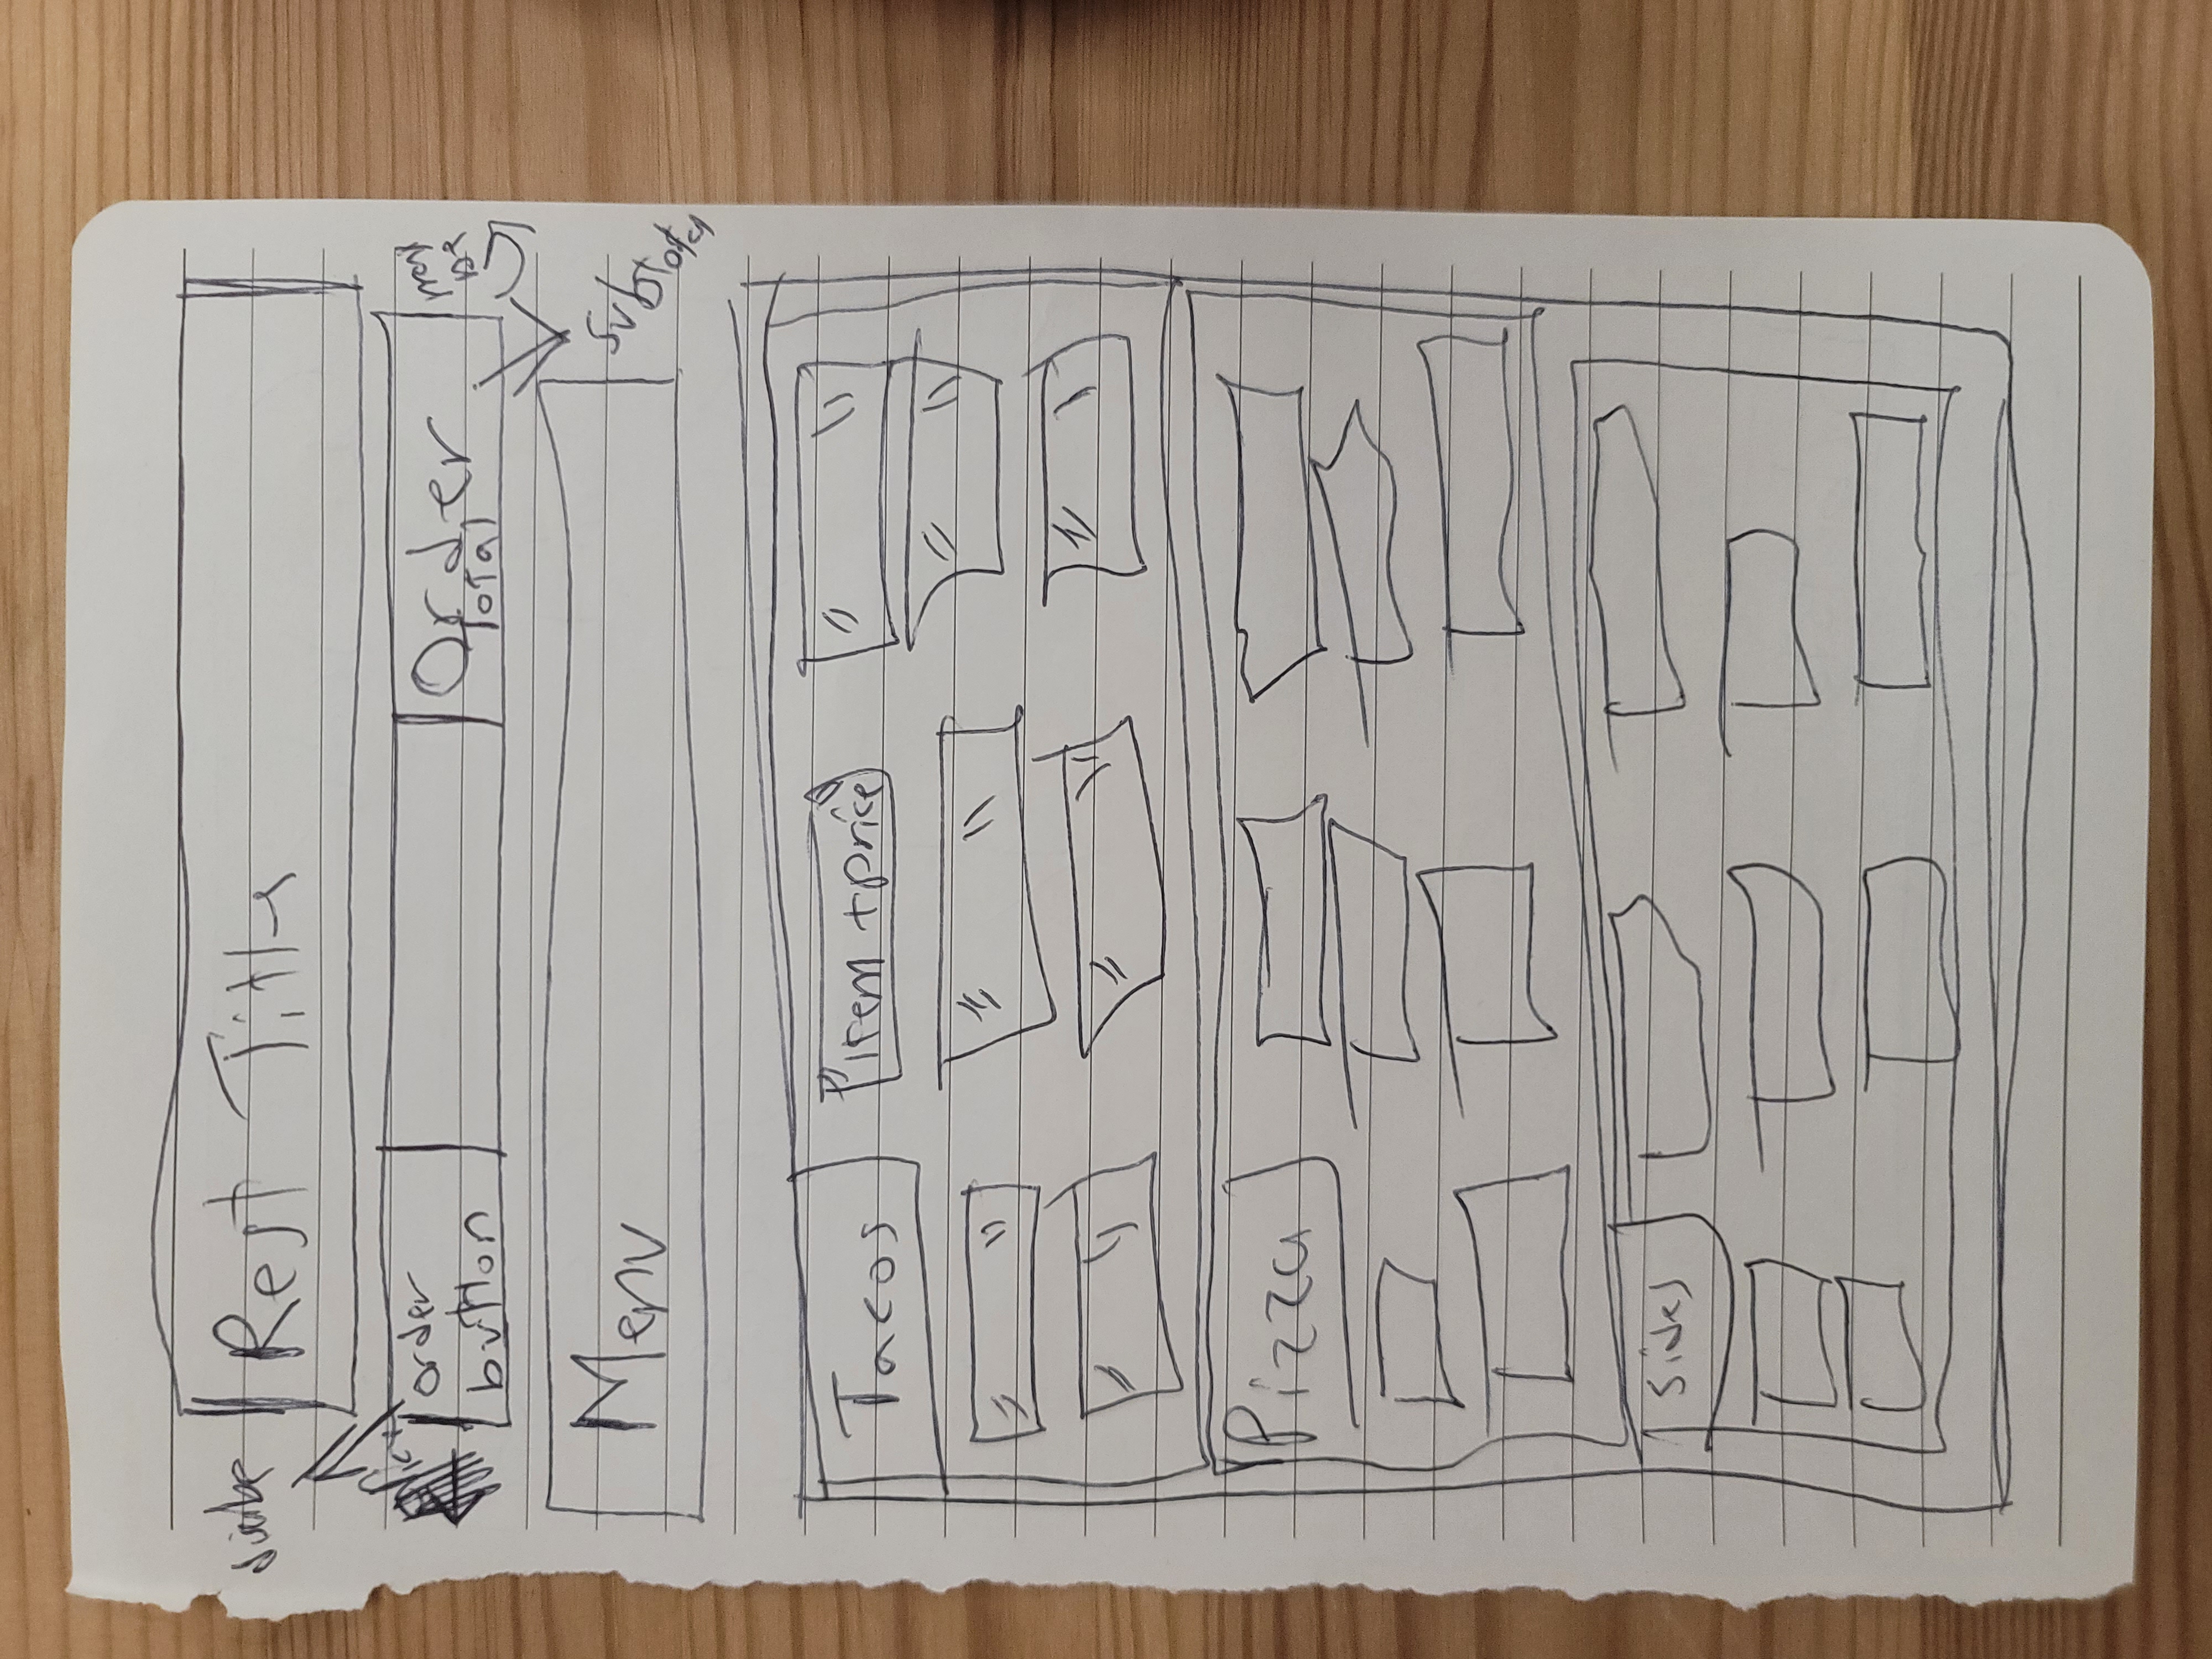 Rest Title
order
button
Order
Total
may
be
Subtotal
Menu
Tacos
"item + price"
Pizza
Sides